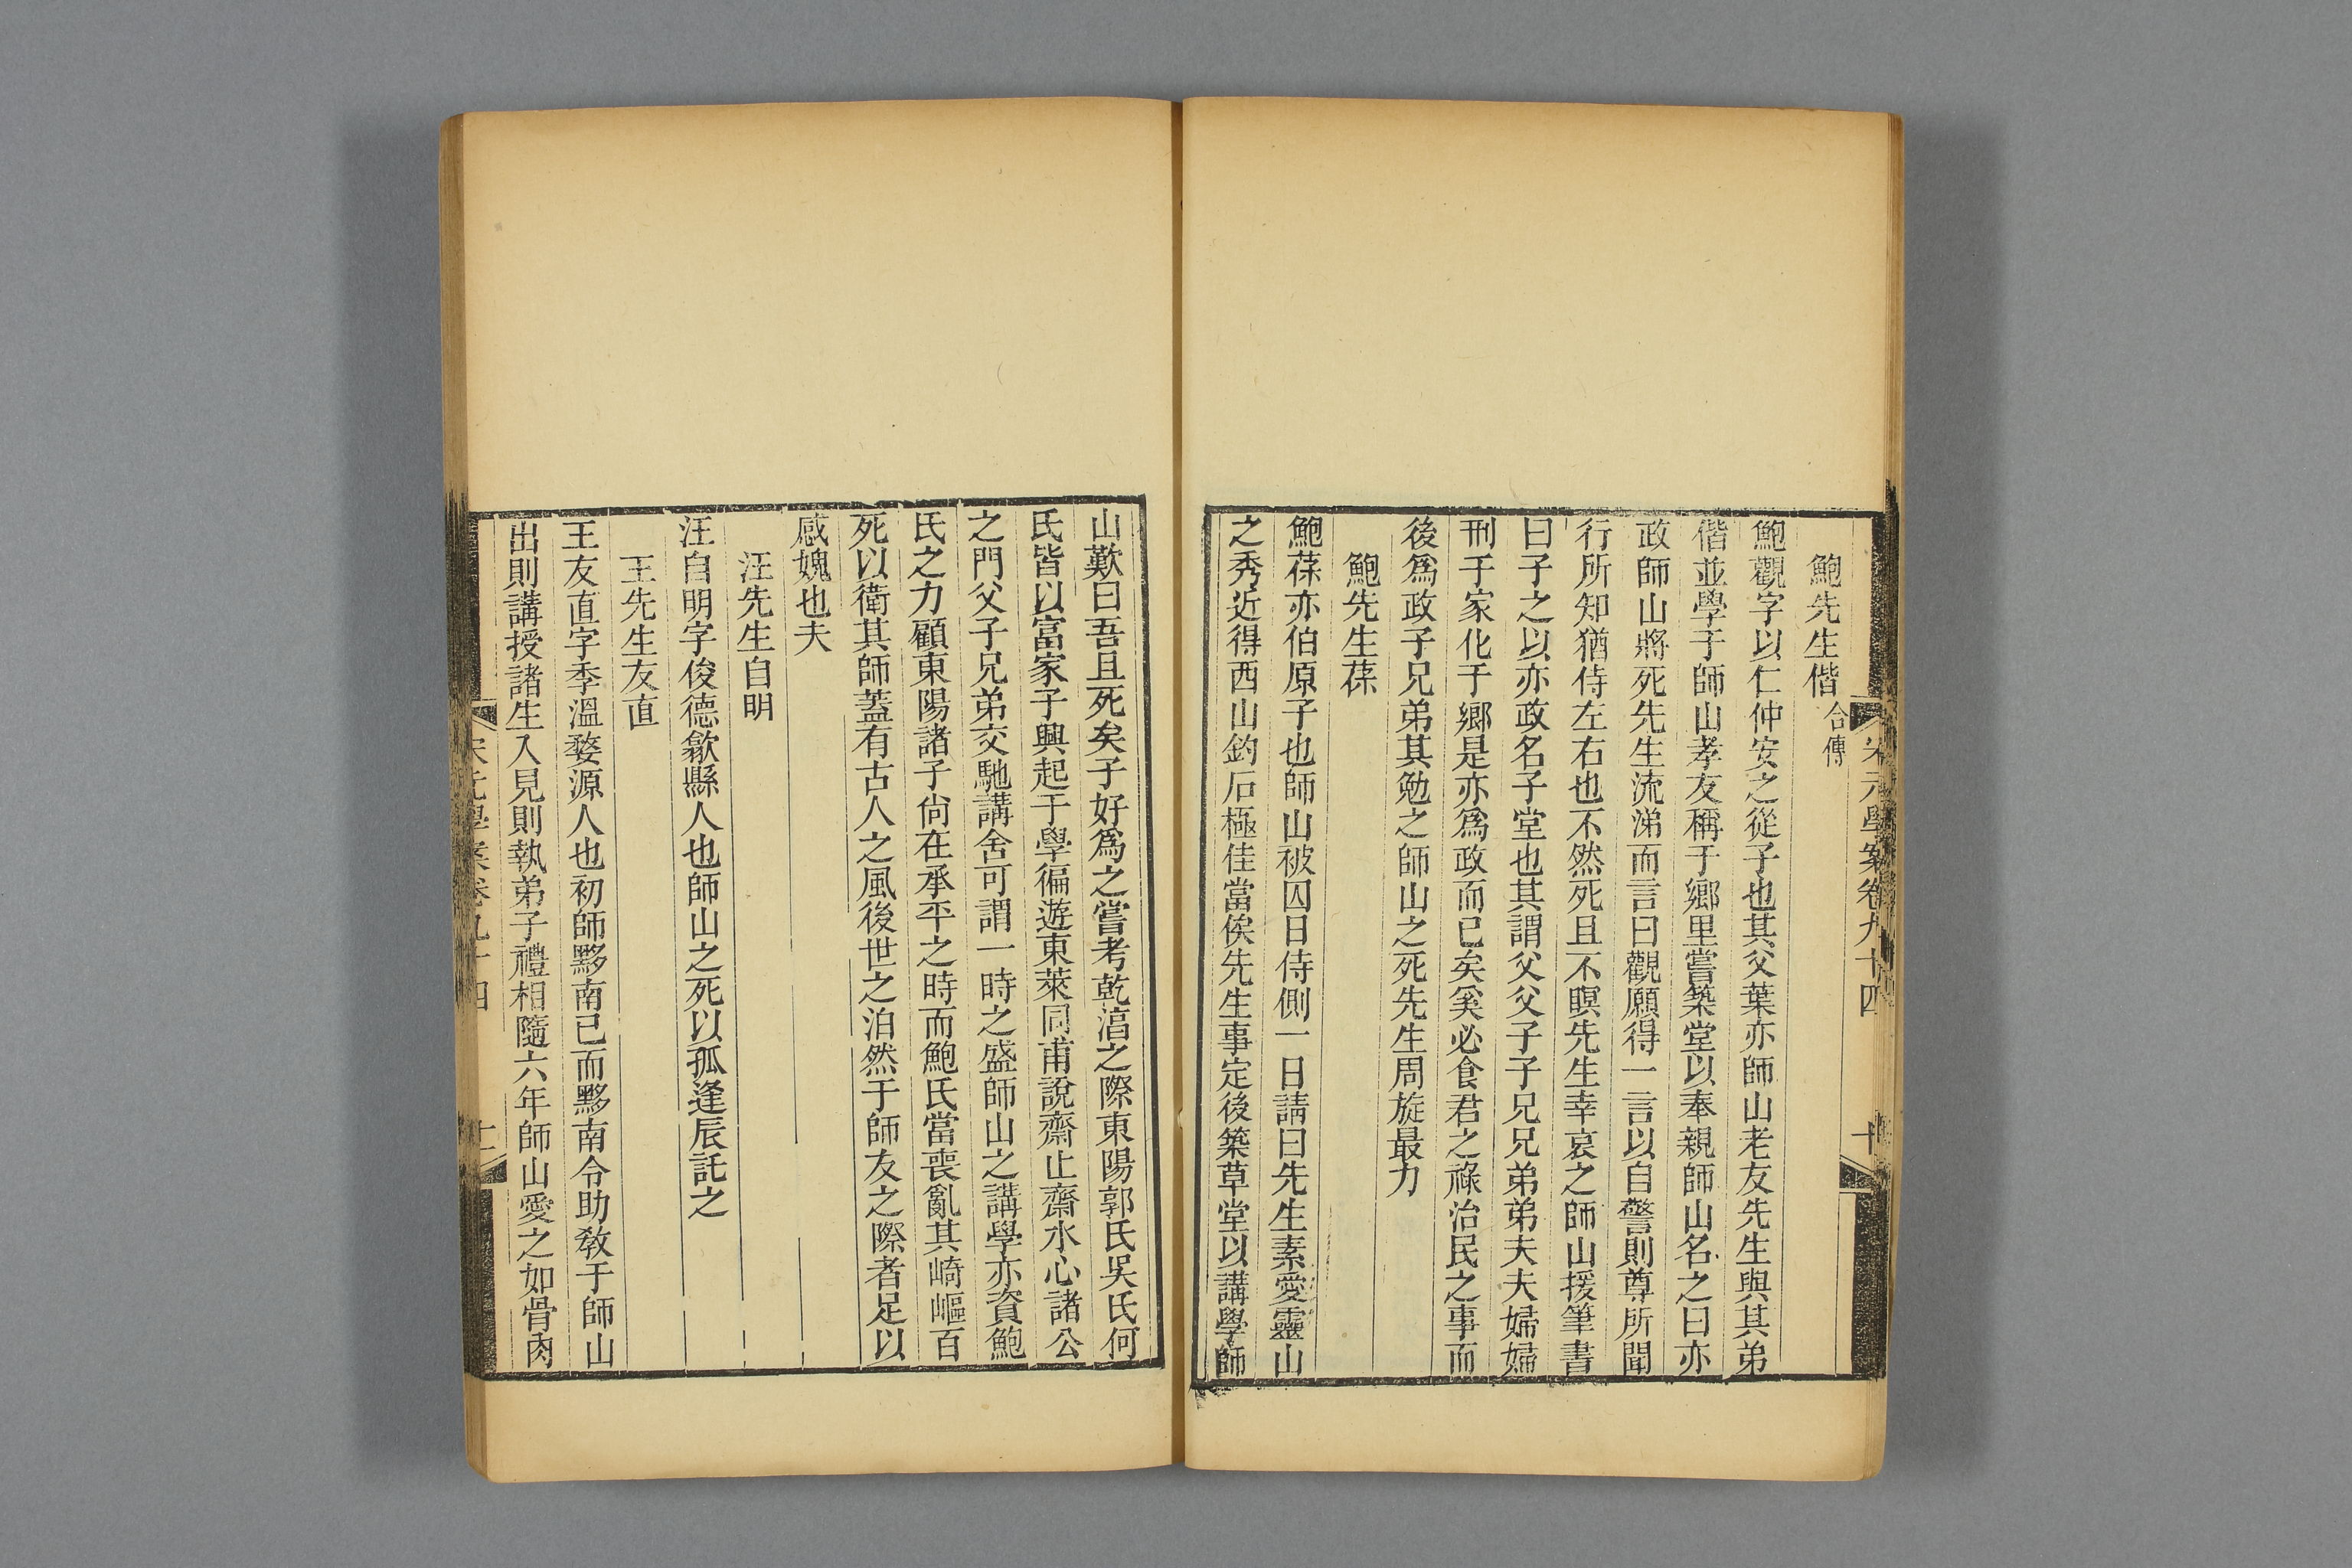 宋元學案卷九十四　十
鮑先生偕合傳
鮑觀字以仁仲安之從子也其父葉亦師山老友先生與其弟
偕並學于師山孝友稱于鄉里嘗築堂以奉親師山名之曰亦
政師山將死先生流涕而言曰觀願得一言以自警則尊所聞
行所知猶侍左右也不然死且不瞑先生幸哀之師山援筆書
曰子之以亦政名子堂也其謂父父子子兄兄弟弟夫夫婦婦
刑于家化于鄉是亦爲政而已矣奚必食君之祿治民之事而
後爲政子兄弟其勉之師山之死先生周旋最力
鮑先生葆
鮑葆亦伯原子也師山被囚日侍側一日請曰先生素愛靈山
之秀近得西山釣石極佳當俟先生事定後築草堂以講學師
山歎曰吾且死矣子好爲之嘗考乾淳之際東陽郭氏吳氏何
氏皆以富家子興起于學徧遊東萊同甫說齋止齋水心諸公
之門父子兄弟交馳講舍可謂一時之盛師山之講學亦資鮑
氏之力顧東陽諸子尙在承平之時而鮑氏當喪亂其崎嶇百
死以衛其師蓋有古人之風後世之泊然于師友之際者足以
感媿也夫
汪先生自明
汪自明字俊德歙縣人也師山之死以孤逢辰託之
王先生友直
王友直字季溫婺源人也初師黟南已而黟南令助敎于師山
出則講授諸生入見則執弟子禮相隨六年師山愛之如骨肉
宋元學案卷九十四